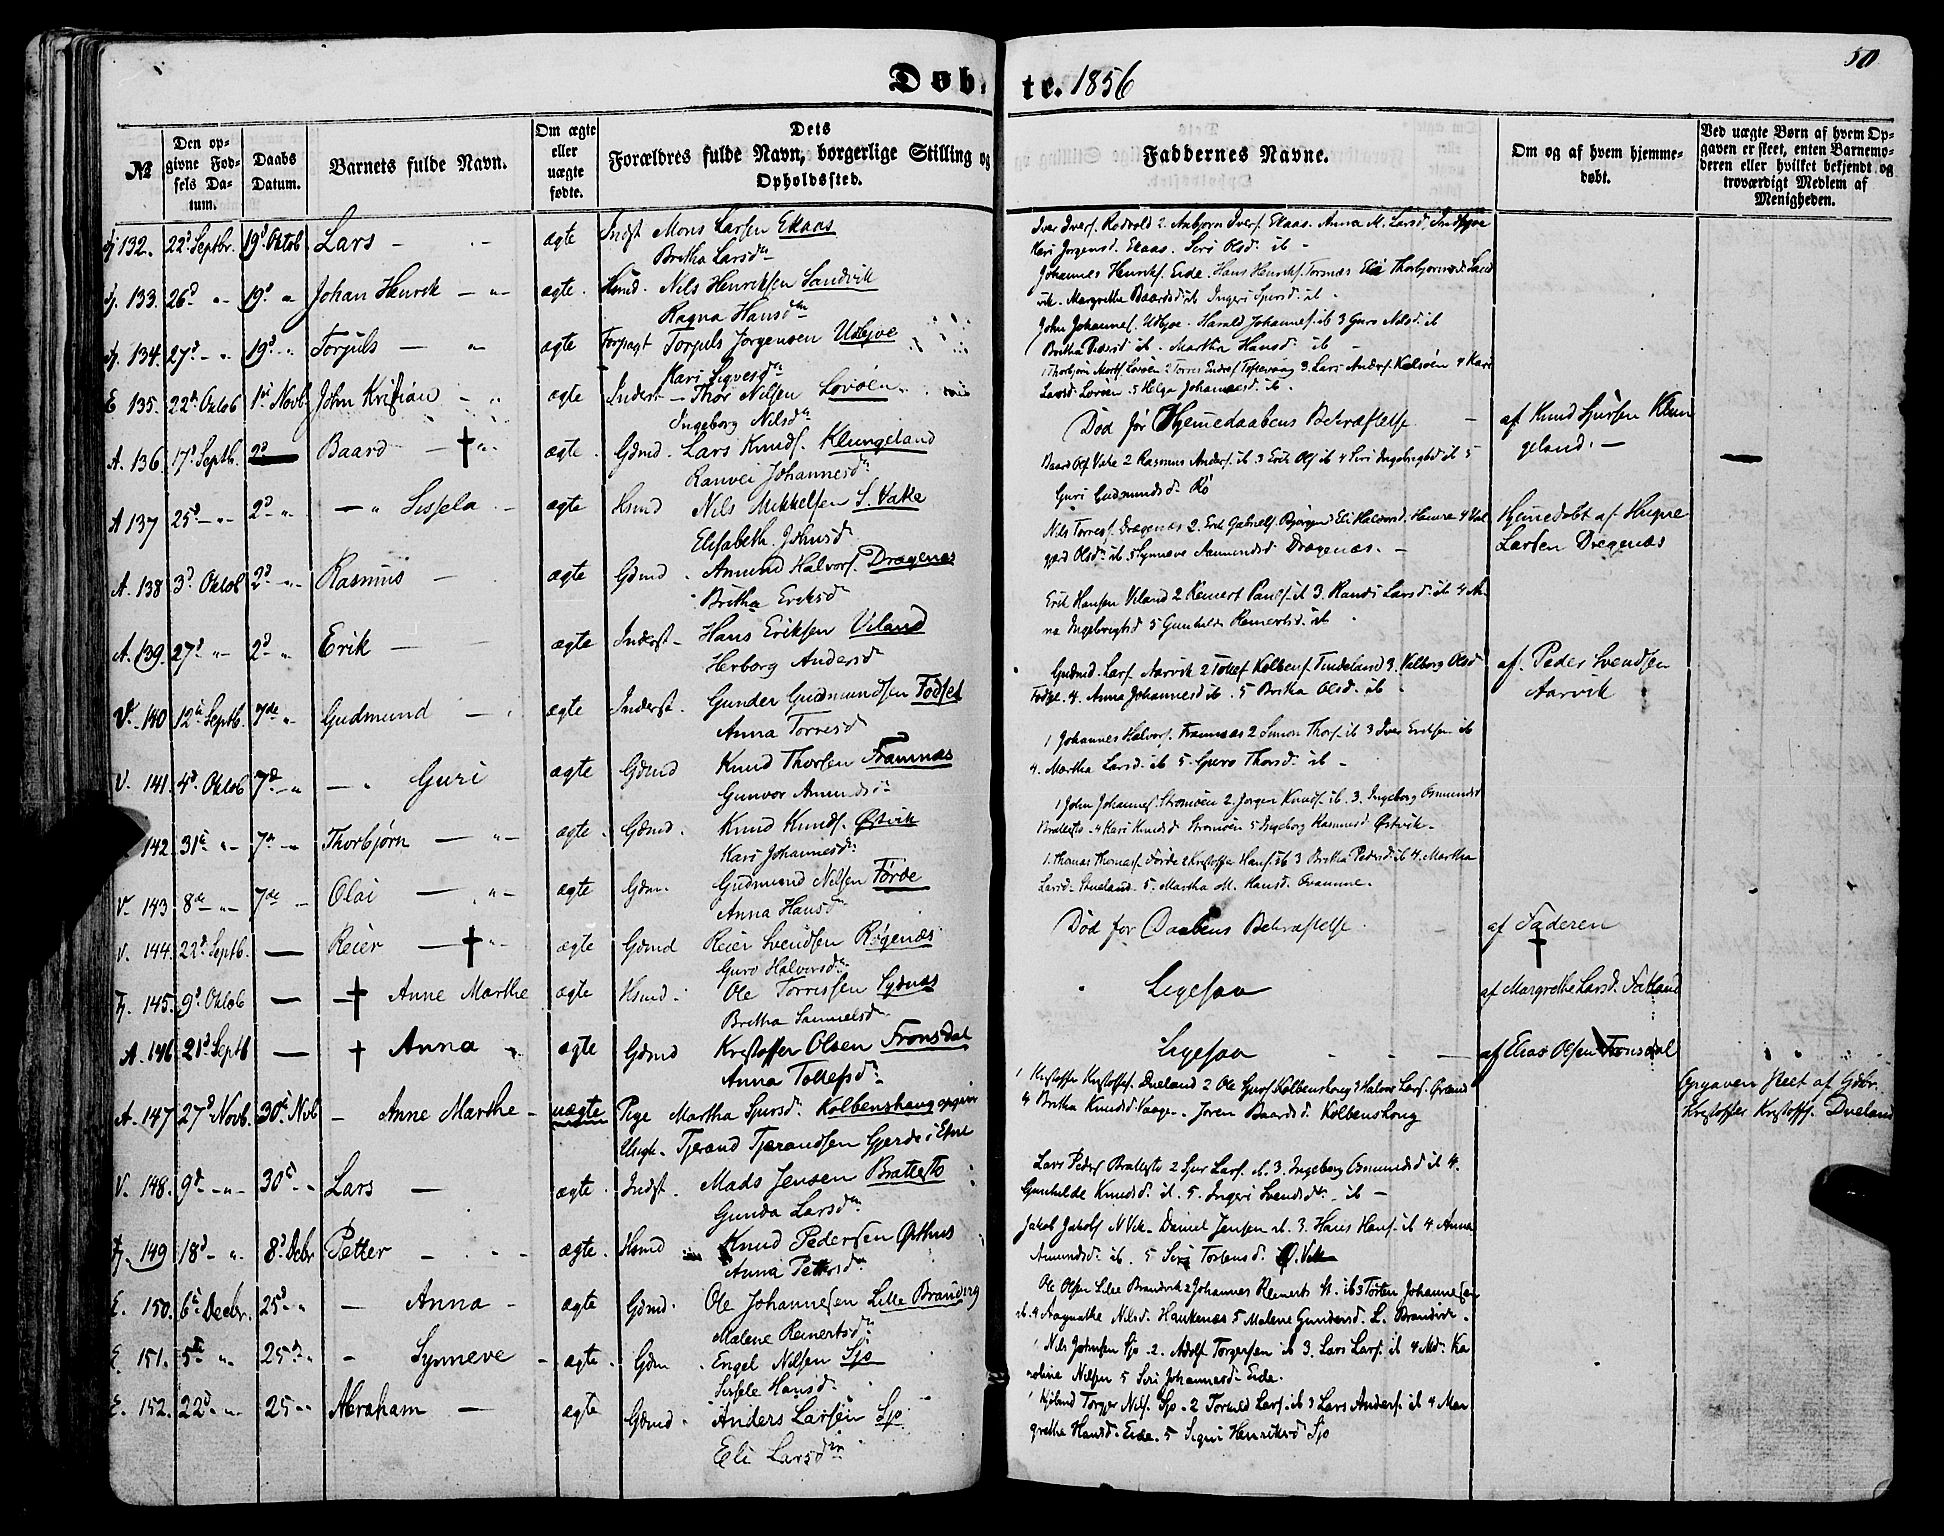 50
Døbte. 1856
№
Den opgivne Fødsels Datum.
Daabs Datum.
Barnets fulde Navn.
Om ægte eller uægte fødte.
Dets Forældres fulde Navn, borgerlige Stilling og Opholdssted.
Faddernes Navne.
Om og af hvem hjemmedøbt.
Ved uægte Børn af hvem Opgaven er skeet, enten Barnemoderen eller hvilket bekjendt og troværdigt Medlem af Menigheden.
132. 22d Septbr. 19d Oktob Lars ægte Indst Mons Larsen Ekaas
Britha Larsdn
Iver Iversf. Rødvold 2 Anbjorn Iversf. Ekaas. Anna M. Larsd.
Kari Jorgensd. Ekaas. Seri Olsd. ib
133. 26d " 19d " Johan Henrik ægte Hsmd. Nils Henriksen Sandvik
Ragna Hansdn
Johannes Henrikf. Eide. Hans Henrikf. Tornæs Eli Thorbjornsd. Sand
vik. Margrethe Baardsd ib Ingeri Sjursd. ib
134. 27d " 19d " Torjuls ægte Forpagt Torjuls Jorgensen Udbjoe
Kari Sigvesdn
John Johannesf. Udbjoe. Harald Johannesf. ib 3 Guro Nilsd. ib
Britha Pedersd ib. Martha Hansd. ib
E 135. 22d Oktob 1st Novb John Kristian ægte Inderst Thor Nilsen Lovøen
Ingeborg Nilsdn
1 Thorbjørn Mortf. Lovøen 2 Torres Endresf. Toftevaag 3. Lars Andersf. Kalvøen 4 Kari
Larsd. Lovøen. 5 Helga Johannesd. ib
A. 136 17d Septb. 2d Baard † ægte Gdmd. Lars Knudsf. Klungeland
Ranvei Johannesdn
Død før Hjemedaabens Bekræftelse
af Knud Sjursen Klun
geland.
A 137 25d " 2d " Sissela ægte Hsmd Nils Mikkelsen S. Vake
Elisabeth Johnsdn
Baard Olsf Vake 2 Rasmus Andersf. ib 3 Erik Olsf ib 4 Seri Ingebrigtsd ib 5
Guri Gudmundsd. Rø
A. 138 3d Oktob 2d " Rasmus ægte Gdmd. Amund Halvorsf. Drægenæs
Britha Eriksdn
Nils Torresf. Drægenæs 2. Erik Gabrielsf. 3 Eli Halvorsd. 4 Val
gjerd Olsd. ib 5 Synneve Aamundsd Drægenæs.
Hjemedøbt af
Larsen Drægenæs
A. 139. 27d " 2d " Erik ægte Inderst Hans Eriksen Viland
Herborg Andersdn
Erik Hansen Viland 2 Reinert Paulsf. ib 3. Randi Larsd. ib 4 An
na Ingebrigtsd 5 Gunhilde Reinertsd. ib
V. 140 12te Septb. 7de " Gudmund ægte Inderst. Gunder Gudmundsen Fodsel
Anna Torresdn
Gudmd. Larsf. Aarvik 2 Tollef Kolbensf. Tindeland 3. Valborg Olsd
4. Anna Johannesd ib. 5 Britha Olsd. ib
af Peder Svendsen
Aarvik
V. 141. 4d Oktob 7de " Guri ægte Gdmd Knud Thorsen Framnæs
Gunvor Amundsdn
1 Johannes Halvorf. Framnæs 2 Simon Thorsf. ib 3 Iver Eriksen ib
4. Martha Larsd. ib 5. Guro Thorsd. ib
142. 31te " 7de " Thorbjørn ægte Gdmd. Knud Knudsf. Østvik
Kari Johannesdn
1 John Johannesf. Stromøen 2. Jorgen Knudsf. ib. 3. Ingeborg Osmundsd
Bratlestø 4 Kari Knudsd Stromøen 5 Ingeborg Rasmusd Østvik
V. 143 8de " 7de " Olai ægte Gdm. Gudmund Nilsen Førde
Anna Hansdn
1. Thomas Thomesf. Førde 2 Kristoffer Hansf. ib 3 Britha Pedersd. ib 4. Martha
Larsd. Stueland. 5. Martha M. Hansd. Qvamme.
V. 144. 22d Septb. Reier † ægte Gdmd Reier Svendsen Røgenæs
Guro Halvorsdn
Død for Daabens Bekræftelse
af Faderen
†
145. 9d Oktob † Anne Marthe ægte Hsmd. Ole Torressen Sydnæs
Britha Samuelsdn
Ligesaa
af Margrethe Larsd. Fatland
A. 146 21d Septb † Anna ægte Gdmd Kristoffer Olsen Fronsdal
Anna Tollefsdn
Ligesaa
af Elias Olsen Fronsdal
A. 147 27d Novb. 30te Novb Anne Marthe uægte Pige Martha Sjursd. Kolbenshaug opgiv
Ungk. Tjerand Tjerandsen Gjerde i Etne
1 Kristoffer Kristoffesf. Dueland 2 Ole Sjursf. Kolbenshoug 3 Halvor Larsf.
4 Britha Knudsd. Vaage Joren Baardsd. Kolbenshoug
Opgaven skeet af Gdbr.
Kristoffer Kristoffsf. Dueland
V. 148. 9d " 30te " Lars ægte Indst. Mads Jensen Bratlestø
Gunda Larsdn
Lars Pedersf Bratlestø 2 Sjur Larsf. ib. 3. Ingeborg Osmundsd ib 4.
Gunhilde Knudsd. ib. 5. Ingeri Svendsdn. ib
149 18d " 8d Decbr Petter ægte Hsmd Knud Pedersen Østhus
Anna Pettersdn
Jakob Jakobsf N Vik Daniel Jensen ib. 3. Hans Hansf. ib 4 Anna
Amundsd. ib. 5 Seri Tostensd. Ø. Vik
E. 150. 6te Decbr. 25d " Anna ægte Gdmd. Ole Johannesen Lille Brandvig
Malene Reinertsdn
Ole Olsen Lille Brandvik 2 Johannes Reinerts St. ib 3 Torsten Johannesen
ib. 4 Aagaathe Nilsd. Haukenæs 5 Malene Gundersd. L. Brandvik
E. 151. 5te " 25d " Synneve ægte Gdm. Engel Nilsen Sjo
Sissele Hansd.
1 Nils Johnsen Sjo. 2. Adolf Torgersen ib 3. Lars Larsf. ib 4 Md. Ka
roline Nilsen 5 Seri Johannesd. Eide.
E. 152. 22d " 25 " Abraham ægte Gdmd. Anders Larsen Sjo
Eli Larsdn
1 Torger Nilsf. Sjo. 2 Torkild Larsf. ib 3 Lars Andersf. ib 4 Mar
grethe Hansd. Eide. 5 Sigrii Henriksd Sjo